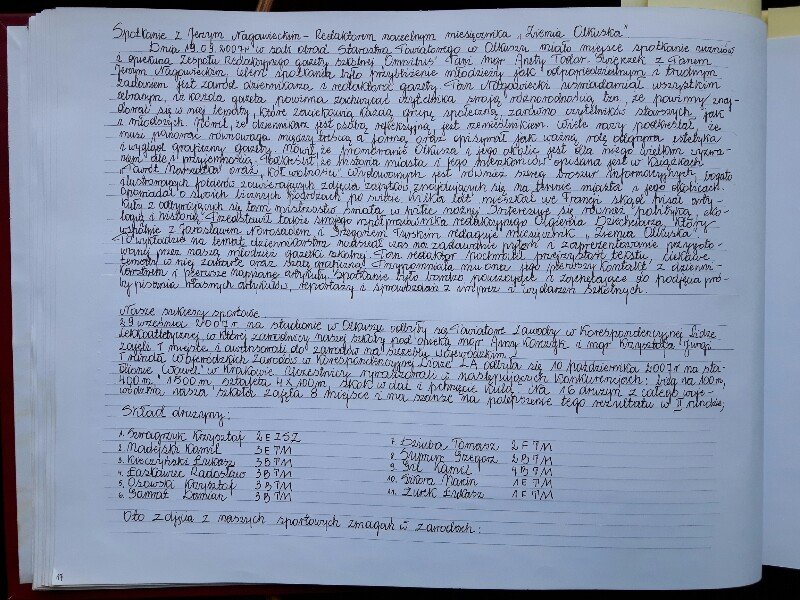 Spotkanie z Jerzym Nagawieckim - Redaktorem naczelnym miesięcznika „Ziemia Olkuska".
Dnia 19.09.2007r w sali obrad Starostwa Powiatowego w Olkuszu miało miejsce spotkanie uczniów
i opiekuna Zespołu Redakcyjnego gazety szkolnej Pani mgr Anety z Panem
Jerzym Nagawieckim. Celem spotkania było przybliżenie młodzieży jak odpowiedzialnym i trudnym
zadaniem jest zawód dziennikarza i redaktora gazety. Pan Nagawiecki uświadamiał wszystkim
zebranym, iż każda gazeta powinna zachwycać czytelnika swoją różnorodnością tzn, że powinny znaj-
dować się w niej tematy, które zaciekawią każdą grupę społeczną, zarówno czytelników starszych, jak
i młodszych. Mówił, że dziennikarz jest osobą refleksyjną, jest rzemieślnikiem. Wiele razy podkreślał, że
musi panować równowaga między treścią a formą oraz opisywał jak ważną rolę odgrywa estetyka
i wygląd graficzny gazety. Mówił, że promowanie Olkusza i jego okolic jest dla niego wielkim wyzwa-
niem ale i przyjemnością. Podkreślił, że historia miasta i jego mieszkańców opisana jest w książkach
oraz „Kot wolności". Wydawanych jest również szereg broszur informacyjnych, bogato
ilustrowanych folderów zawierających zdjęcia zabytków znajdujących się na terenie miasta i jego okolicach.
Opowiadał o swoich licznych podróżach po świecie. Kilka lat mieszkał we Francji skąd pisał arty-
kuły z odbywających się tam mistrzostw świata w piłce nożnej. Interesuje się również polityką, eko-
logią i historią. Przedstawił także swojego współpracownika redakcyjnego Olgierda, który
wspólnie z Jarosławem i Grzegorzem redaguje miesięcznik „Ziemia Olkuska".
Po wykładzie na temat dziennikarstwa nadszedł czas na zadawanie pytań i zaprezentowanie przygoto-
wanej przez naszą młodzież gazetki szkolnej. Pan redaktor pochwalił przejrzystość tekstu, ciekawe
w niej zawarte oraz szatę graficzną. Przypomniała mu ona jego pierwszy kontakt z dzienni-
karstwem i pierwsze napisane artykuły. Spotkanie było bardzo pouczające i zachęcające do podjęcia pró-
by pisania własnych artykułów, reportaży i sprawozdań z imprez i wydarzeń szkolnych.
Nasze sukcesy sportowe.
29 września 2007r na stadionie w Olkuszu odbyły się Powiatowe Zawody w Korespondencyjnej Lidze
Lekkoatletycznej, w której zawodnicy naszej szkoły pod opieką mgr Anny i mgr Krzysztofa
zajęli I miejsce i awansowali do zawodów na szczeblu wojewódzkim.
I runda Wojewódzkich Zawodów w Korespondencyjnej Lidze LA odbyła się 10 października 2007r na sta-
dionie „Wawel" w Krakowie. Uczestnicy rywalizowali w następujących konkurencjach: bieg na 100m,
400m, 1500m, sztafeta 4x100m, skok w dal i pchnięcie kulą. Na 16 drużyn z całego woje-
wództwa nasza szkoła zajęła 8 miejsce i ma szansę na polepszenie tego rezultatu w II rundzie.
Skład drużyny:
1. Krzysztof 2 E ZSZ
2. Madejski Kamil 3 E TM
3. Kieczyński Łukasz 3 B TM
4. Łaskawiec Radosław 3 B TM
5. Osowski Krzysztof 3 B TM
6. Damian 3 B TM
7. Dziuba Tomasz 2 F TM
8. Grzegorz 2 B TM
9. Gil Kamil 4 B TM
10. Sikora Marcin 1 E TM
11. Żurek Łukasz 1 E TM
Oto zdjęcia z naszych sportowych zmagań w zawodach:
17